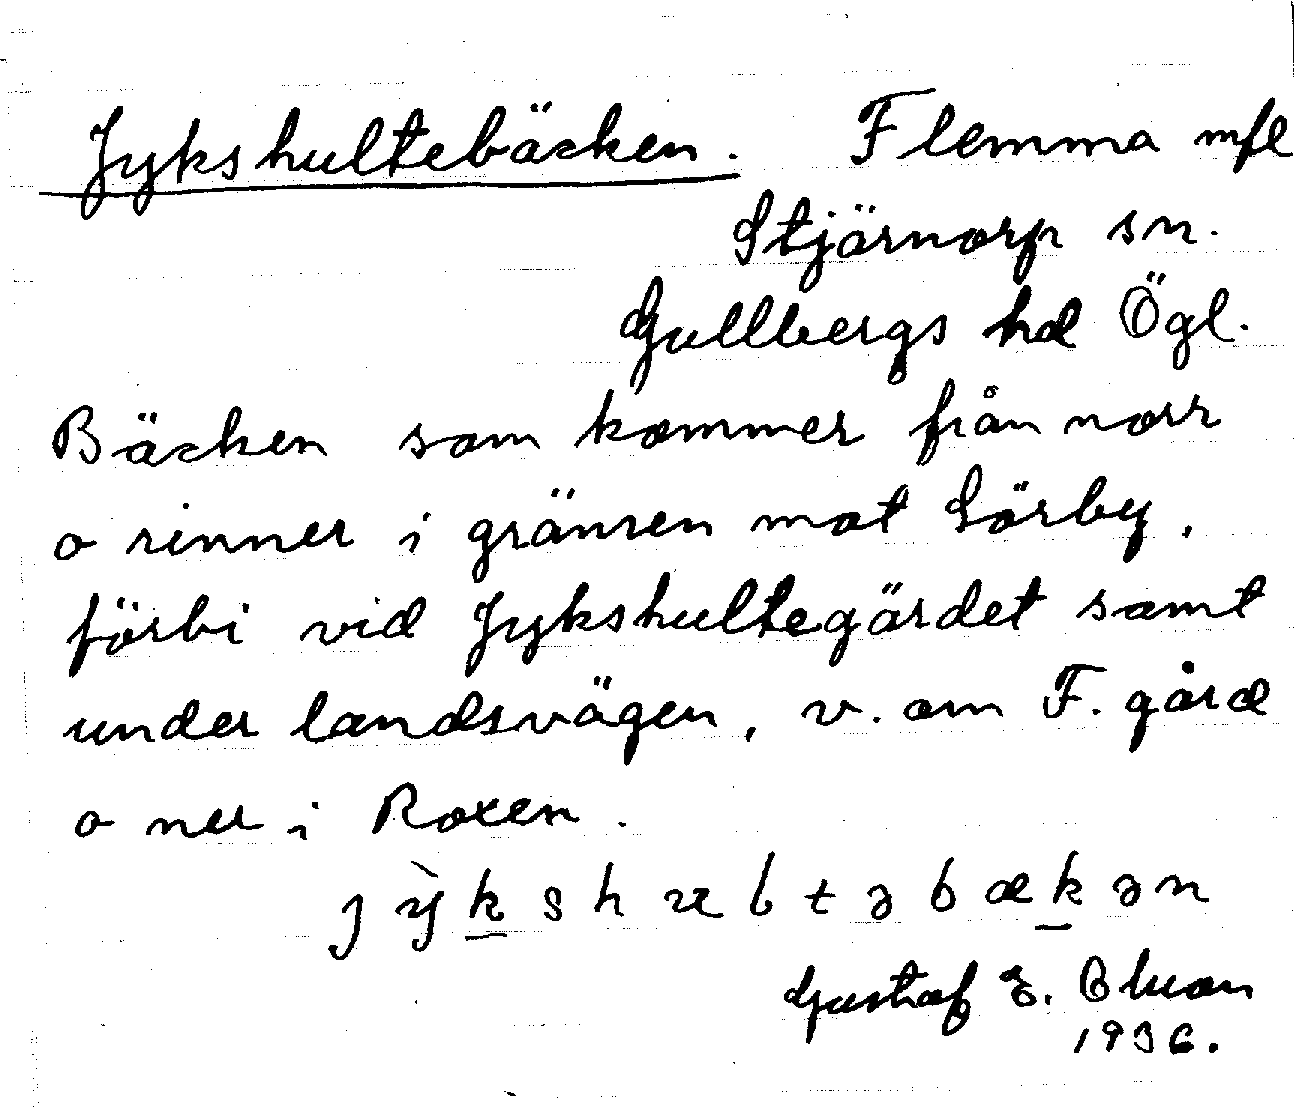 Jykshultebäcken. Flemma mfl
Stjärnorp sn.
Gullbergs hd Ögl.
Bäcken som kommer från norr
o rinner i gränsen mot Sörby,
förbi vid Jykshultegärdet samt
under landsvägen, v. om F. gård
o ner i Roxen.
Gustaf E.
1936.